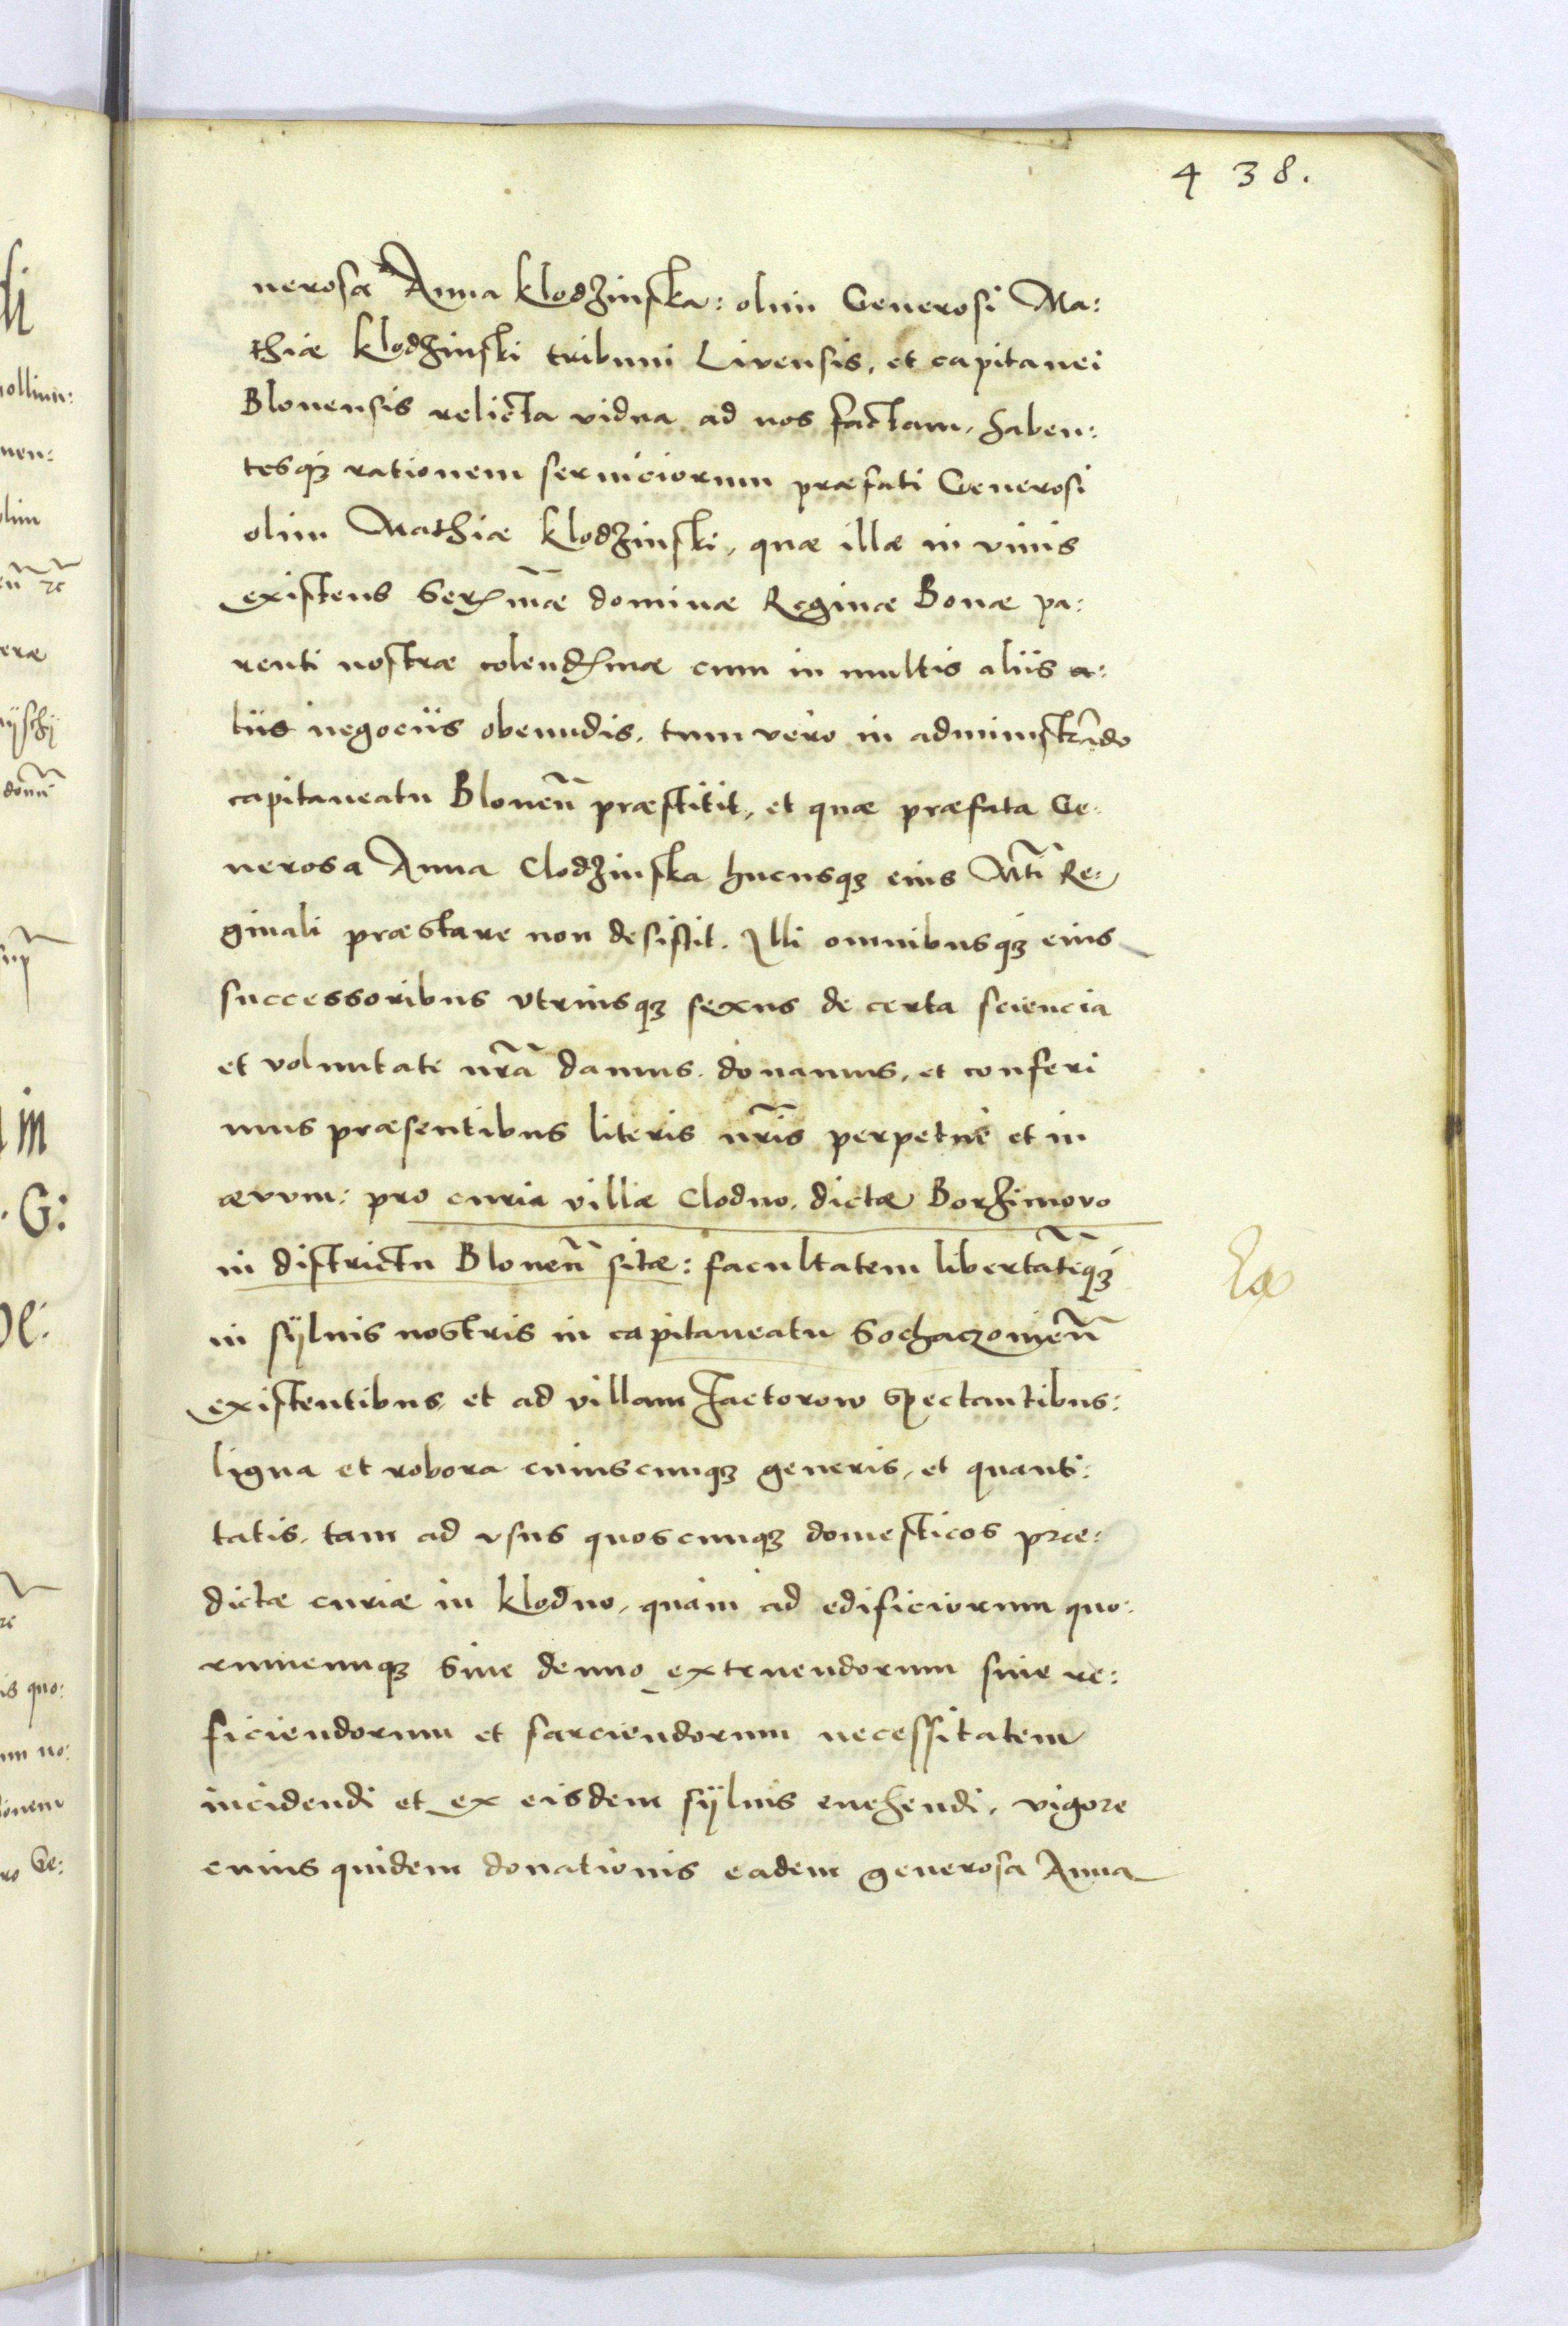 438.
nerosa Anna Klodzinska: olim Generosi Ma:
thiæ Klodzinski tribuni Livensis, et capitanei
Blonensis relicta vidua ad nos factam, haben:
tesq3 rationem seruiciorum præfati Generosi
olim Mathiæ Klodzinski, quæ illæ in viuis
existens Serᵐæ dominæ Reginæ Bonæ pa:
renti nostræ colendᵐæ cum in multis aliis a:
liis negociis obeundis, tum vero in administrãdo
capitaneatu Blonen̄ præstitit, et quæ præfata Ge:
nerosa Anna Clodzinska hucusq3 eius Mti Re:
ginali præstare non desistit. Illi omnibusq3 eius
successoribus vtriusq3 sexus de certa sciencia
et voluntate nrã damus, donamus, et conferi
mus præsentibus literis nrĩs perpetue et in
ævvm: pro curia villæ Clodno, dictæ Borzimovo
in districtu Blonen̄ sitæ: facultatem libertatẽq3
in sÿluis nostris in capitaneatu Sochaczouien̄
existentibus, et ad villam Jactorow spectantibus:
ligna et robora cuiuscunq3 generis, et quanti:
tatis, tam ad vsus quoscunq3 domesticos præ:
dictæ curiæ in Klodno, quam ad edificiorum quo:
rumcunq3 siue denuo extruendorum siue re:
ficiendorum et sarciendorum necessitatem
incidendi et ex eisdem sÿluis euehendi, vigore
cuius quidem donationis eadem generosa Anna